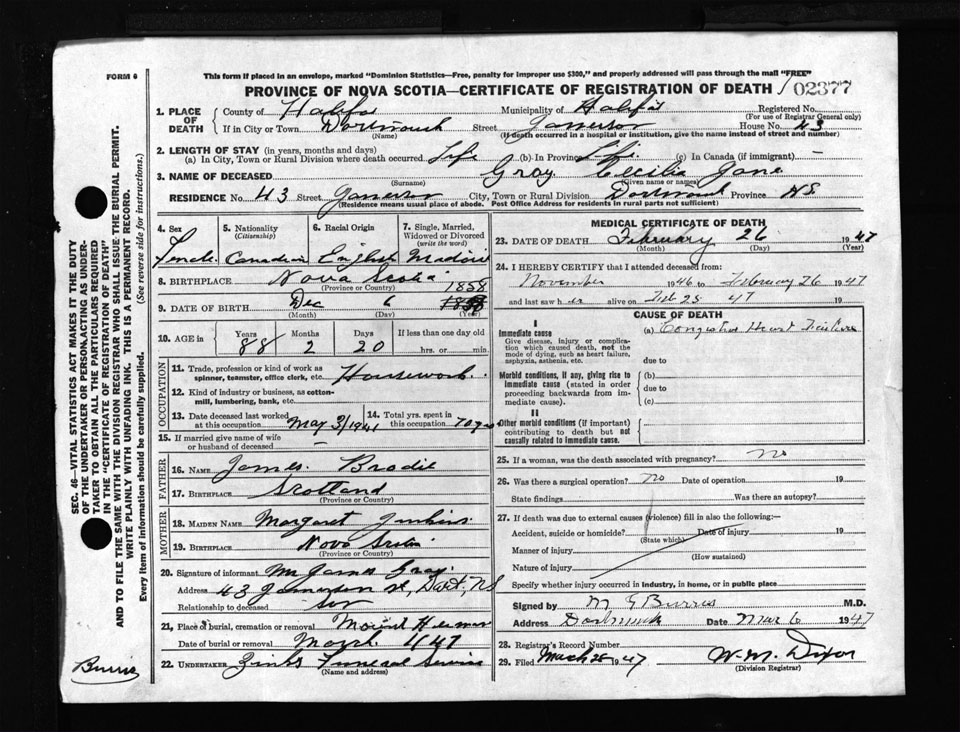 FORM 6
This form if placed in an envelope, marked "Dominion Statistics—Free, penalty for improper use $300," and properly addressed will pass through the mail "FREE"
PROVINCE OF NOVA SCOTIA—CERTIFICATE OF REGISTRATION OF DEATH 02377
1. PLACE OF DEATH
County of Halifax Municipality of Halifax Registered No.
(For use of Registrar General only)
If in City or Town Dartmouth Street House No. 43
(Name) (If death occurred in a hospital or institution, give the name instead of street and number)
2. LENGTH OF STAY (in years, months and days)
(a) In City, Town or Rural Division where death occurred Life (b) In Province Life (c) In Canada (if immigrant) —
3. NAME OF DECEASED Gray Cecilia Jane
(Surname) (Given name or names)
RESIDENCE No. 43 Street City, Town or Rural Division Dartmouth Province NS
(Residence means usual place of abode. Post Office Address for residents in rural parts not sufficient)
4. Sex
Female
5. Nationality
(Citizenship)
Canadian
6. Racial Origin
English
7. Single, Married, Widowed or Divorced
(write the word)
8. BIRTHPLACE Nova Scotia
(Province or Country)
9. DATE OF BIRTH Dec 6 1858
(Month) (Day) (Year)
10. AGE in
Years Months Days If less than one day old
88 2 20 hrs. or min.
OCCUPATION
11. Trade, profession or kind of work as spinner, teamster, office clerk, etc. Housework
12. Kind of industry or business, as cotton-mill, lumbering, bank, etc.
13. Date deceased last worked at this occupation May 31 1941
14. Total yrs. spent in this occupation 70 yrs
15. If married give name of wife or husband of deceased —
FATHER
16. NAME James Brodie
17. BIRTHPLACE Scotland
(Province or Country)
MOTHER
18. MAIDEN NAME Margaret
19. BIRTHPLACE Nova Scotia
(Province or Country)
20. Signature of informant Mr James Gray
Address 43 st, Dart, NS
Relationship to deceased son
21. Place of burial, cremation or removal Mount Hermon
Date of burial or removal March 1/47
22. UNDERTAKER Zinks Funeral Service
(Name and address)
MEDICAL CERTIFICATE OF DEATH
23. DATE OF DEATH February 26 1947
(Month) (Day) (Year)
24. I HEREBY CERTIFY that I attended deceased from:
November 1946 to February 26 1947
and last saw her alive on Feb 25 47 19
CAUSE OF DEATH
I
Immediate cause
Give disease, injury or complication which caused death, not the mode of dying, such as heart failure, asphyxia, asthenia, etc.
(a) Congestive Heart Failure
due to
Morbid conditions, if any, giving rise to immediate cause (stated in order proceeding backwards from immediate cause).
(b)
due to
(c)
II
Other morbid conditions (if important) contributing to death but not causally related to immediate cause.
25. If a woman, was the death associated with pregnancy? No
26. Was there a surgical operation? No Date of operation 19
State findings Was there an autopsy?
27. If death was due to external causes (violence) fill in also the following:—
Accident, suicide or homicide? Date of injury 19
(State which)
Manner of injury
(How sustained)
Nature of injury
Specify whether injury occurred in industry, in home, or in public place
Signed by M G Burris M.D.
Address Dartmouth Date Mar 6 1947
28. Registrar's Record Number
29. Filed March 28 1947 W. M. Dixon
(Division Registrar)
SEC. 46—VITAL STATISTICS ACT MAKES IT THE DUTY
OF THE UNDERTAKER OR PERSON ACTING AS UNDERTAKER
TO OBTAIN ALL THE PARTICULARS REQUIRED
IN THE "CERTIFICATE OF REGISTRATION OF DEATH"
AND TO FILE THE SAME WITH THE DIVISION REGISTRAR WHO SHALL ISSUE THE BURIAL PERMIT.
WRITE PLAINLY WITH UNFADING INK. THIS IS A PERMANENT RECORD.
Every item of information should be carefully supplied. (See reverse side for instructions.)
Burris